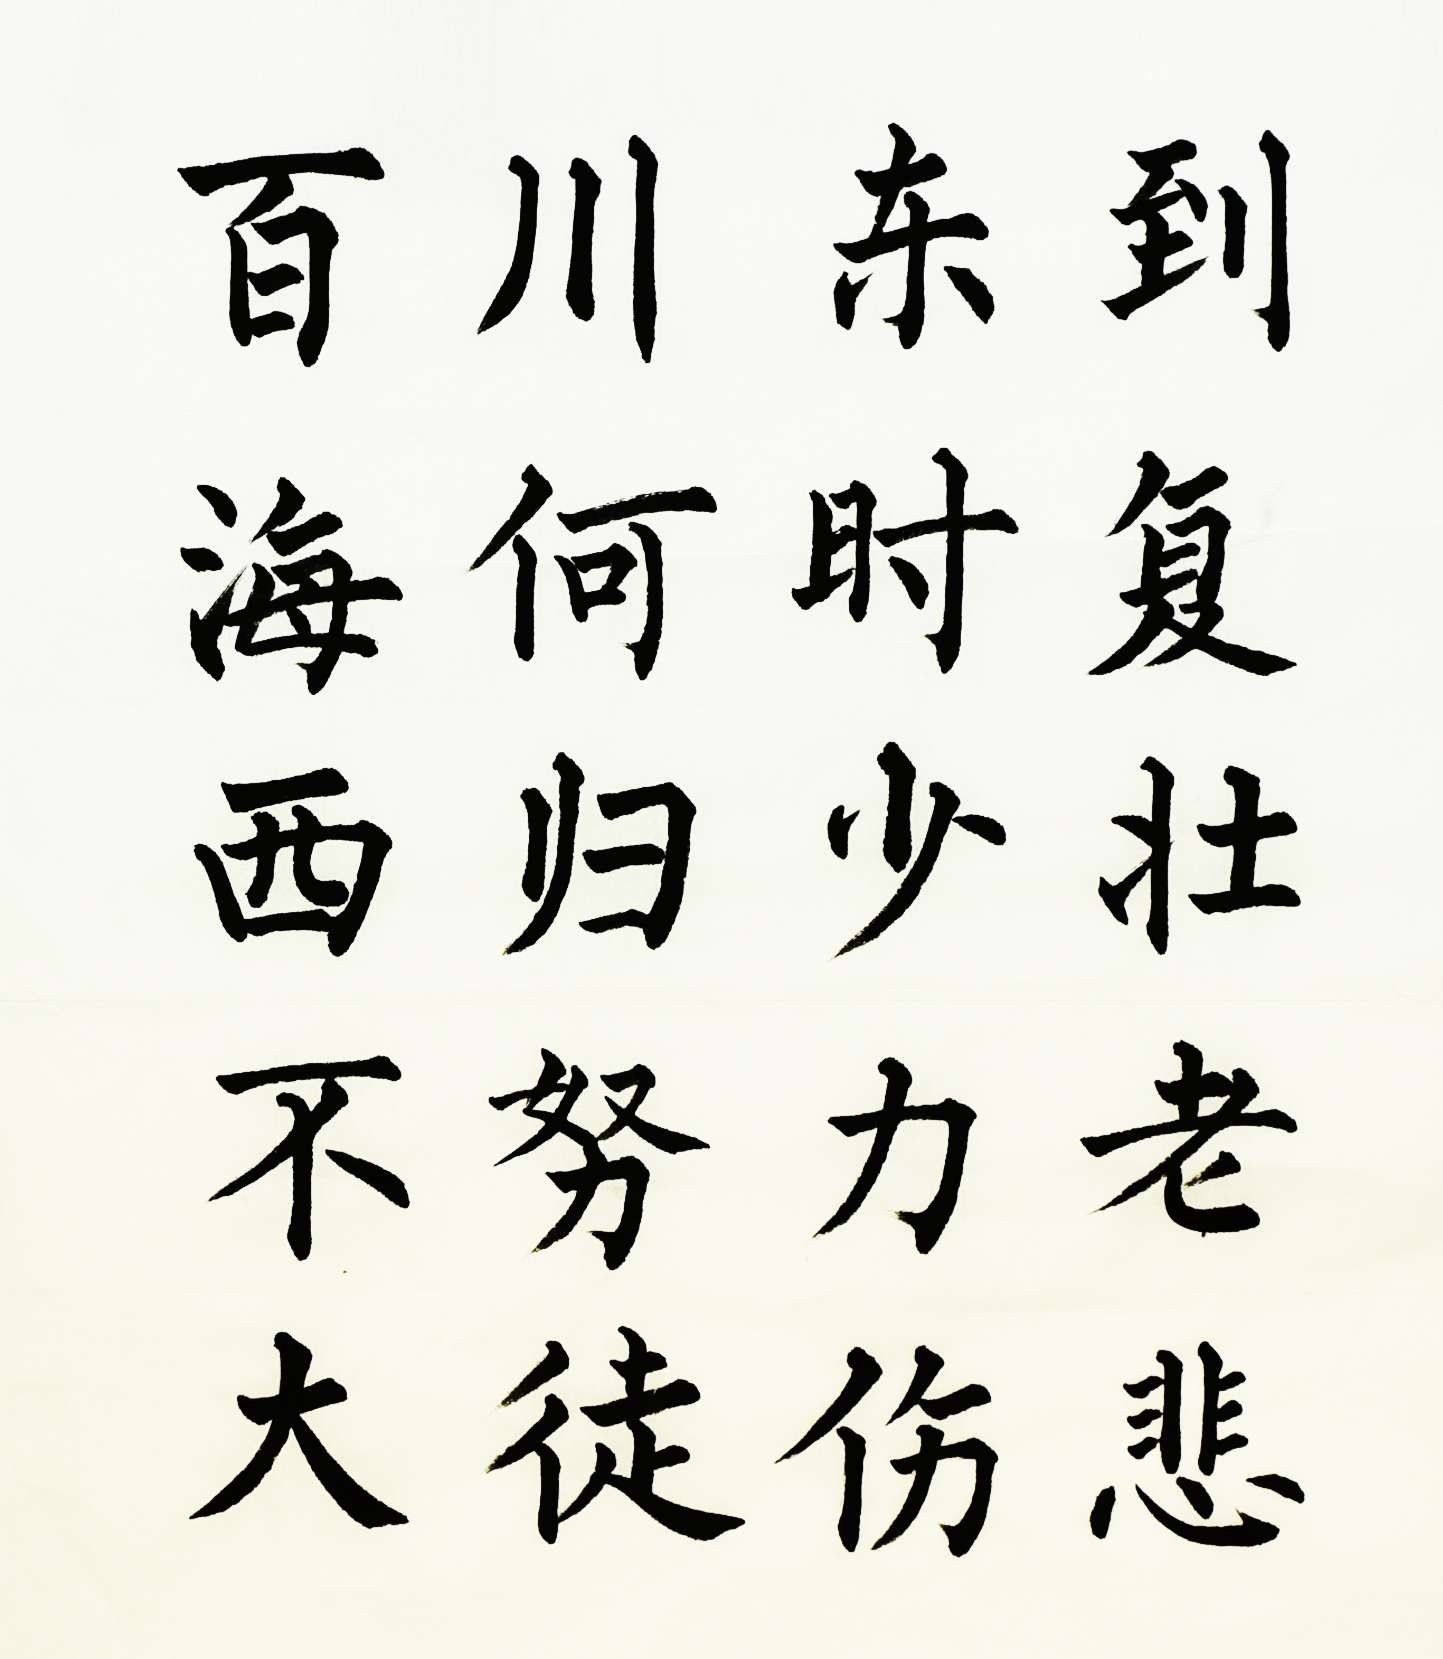 百川东到
海何时复
西归少壮
不努力老
大徒伤悲